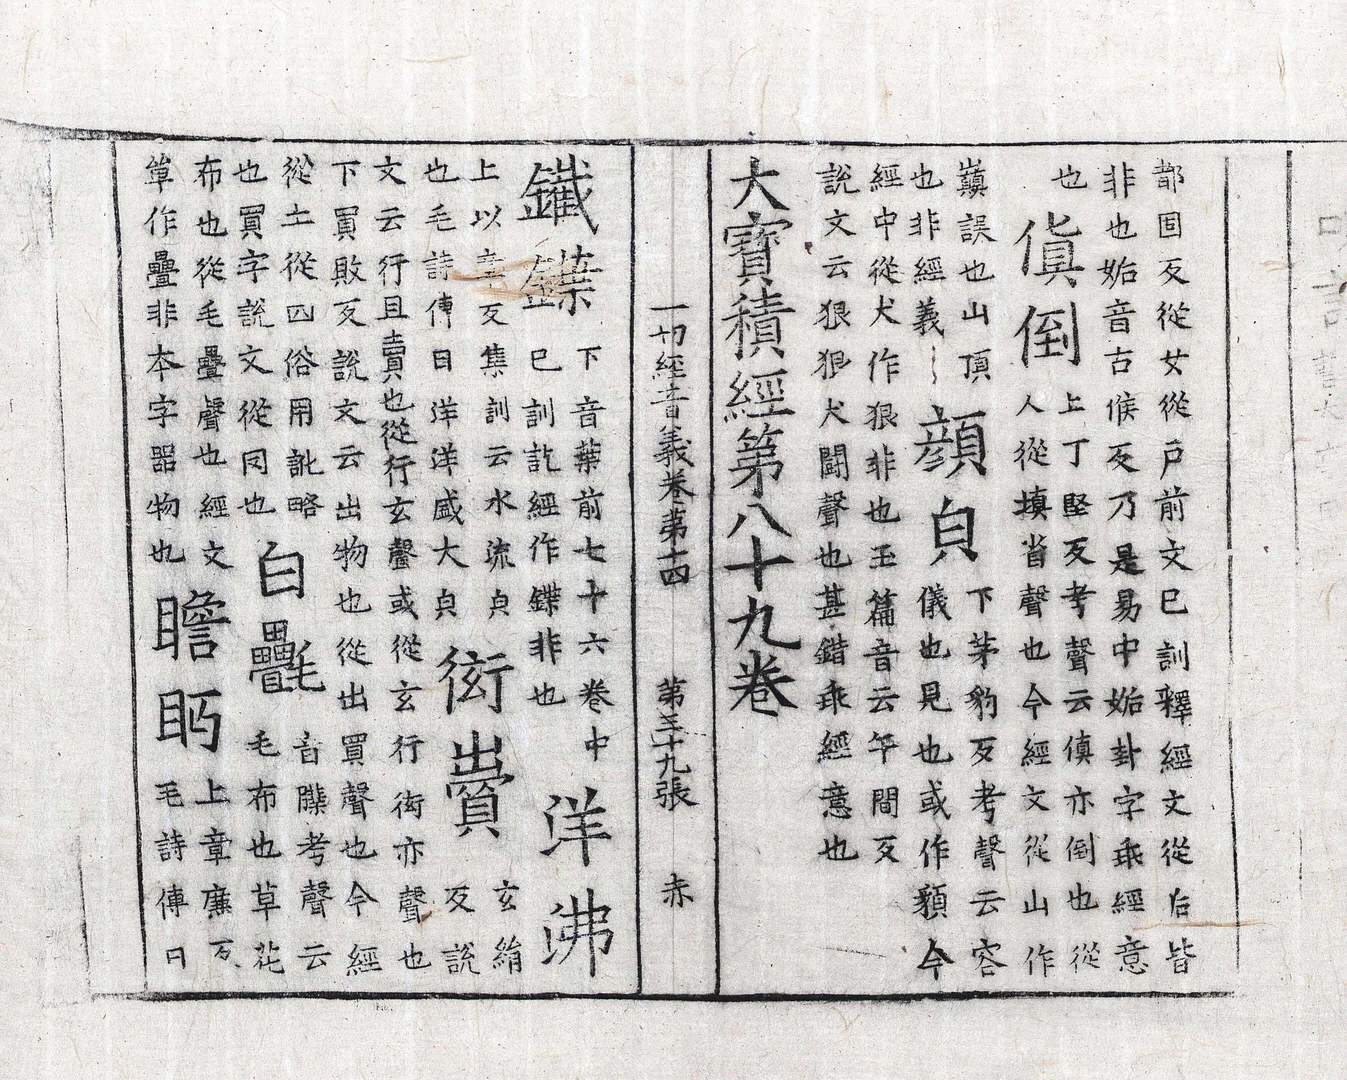 都固反從女從戶前文已訓釋經文從后皆
非也姤音古候反乃是易中姤卦字乖經意
也
傎倒
上丁堅反考聲云傎亦倒也從
人從塡省聲也今經文從山作
巔誤也山頂
也非經義
顏皃
下茅豹反考聲云容
儀也見也或作貌今
經中從犬作狠非也玉篇音云午間反
說文云狠狠犬鬪聲也甚錯乖經意也
大寶積經第八十九卷
一切經音義卷第十四 第三十九張 赤
鐵鍱
下音葉前七十六卷中
已訓訖經作鐷非也
洋沸
上以章反集訓云水流皃
也毛詩傳曰洋洋盛大皃
衒賣
玄絹
反說
文云行且賣也從行玄聲或從玄行衒亦聲也
下買敗反說文云出物也從出買聲也今經
從土從四俗用訛略
也買字說文從冈也
白㲲
音牒考聲云
毛布也草花
布也從毛疊聲也經文
單作疊非本字器物也
瞻眄
上章廉反
毛詩傳曰